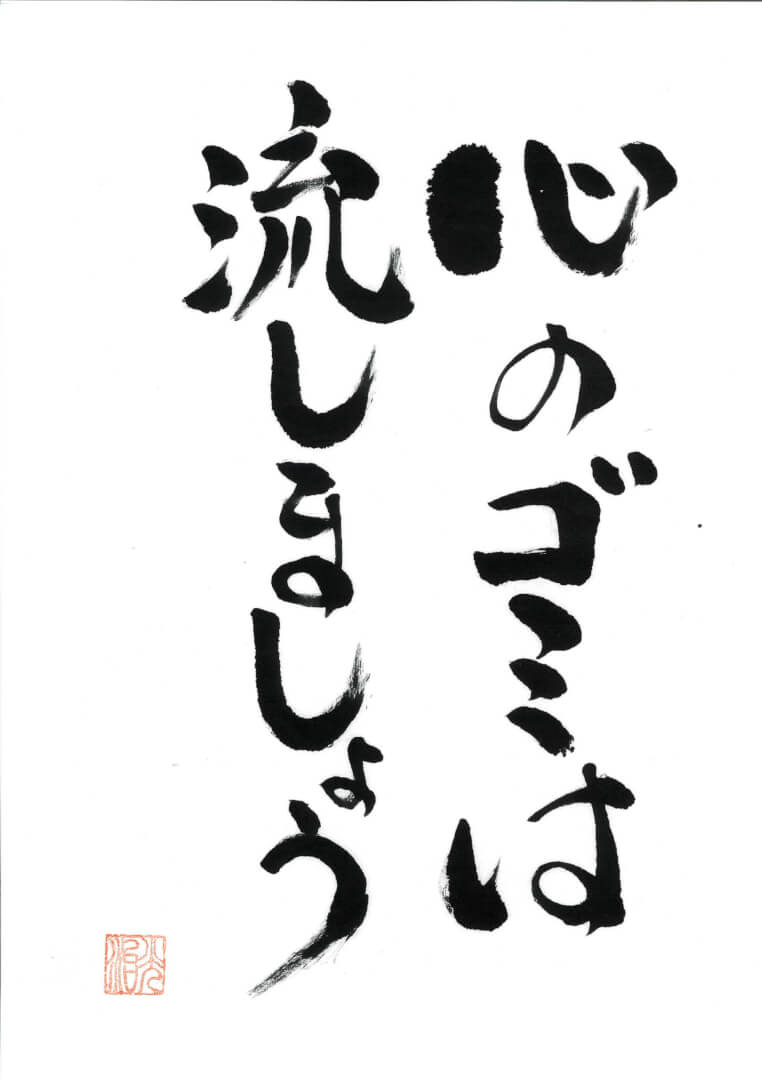 心のゴミは
流しましょう